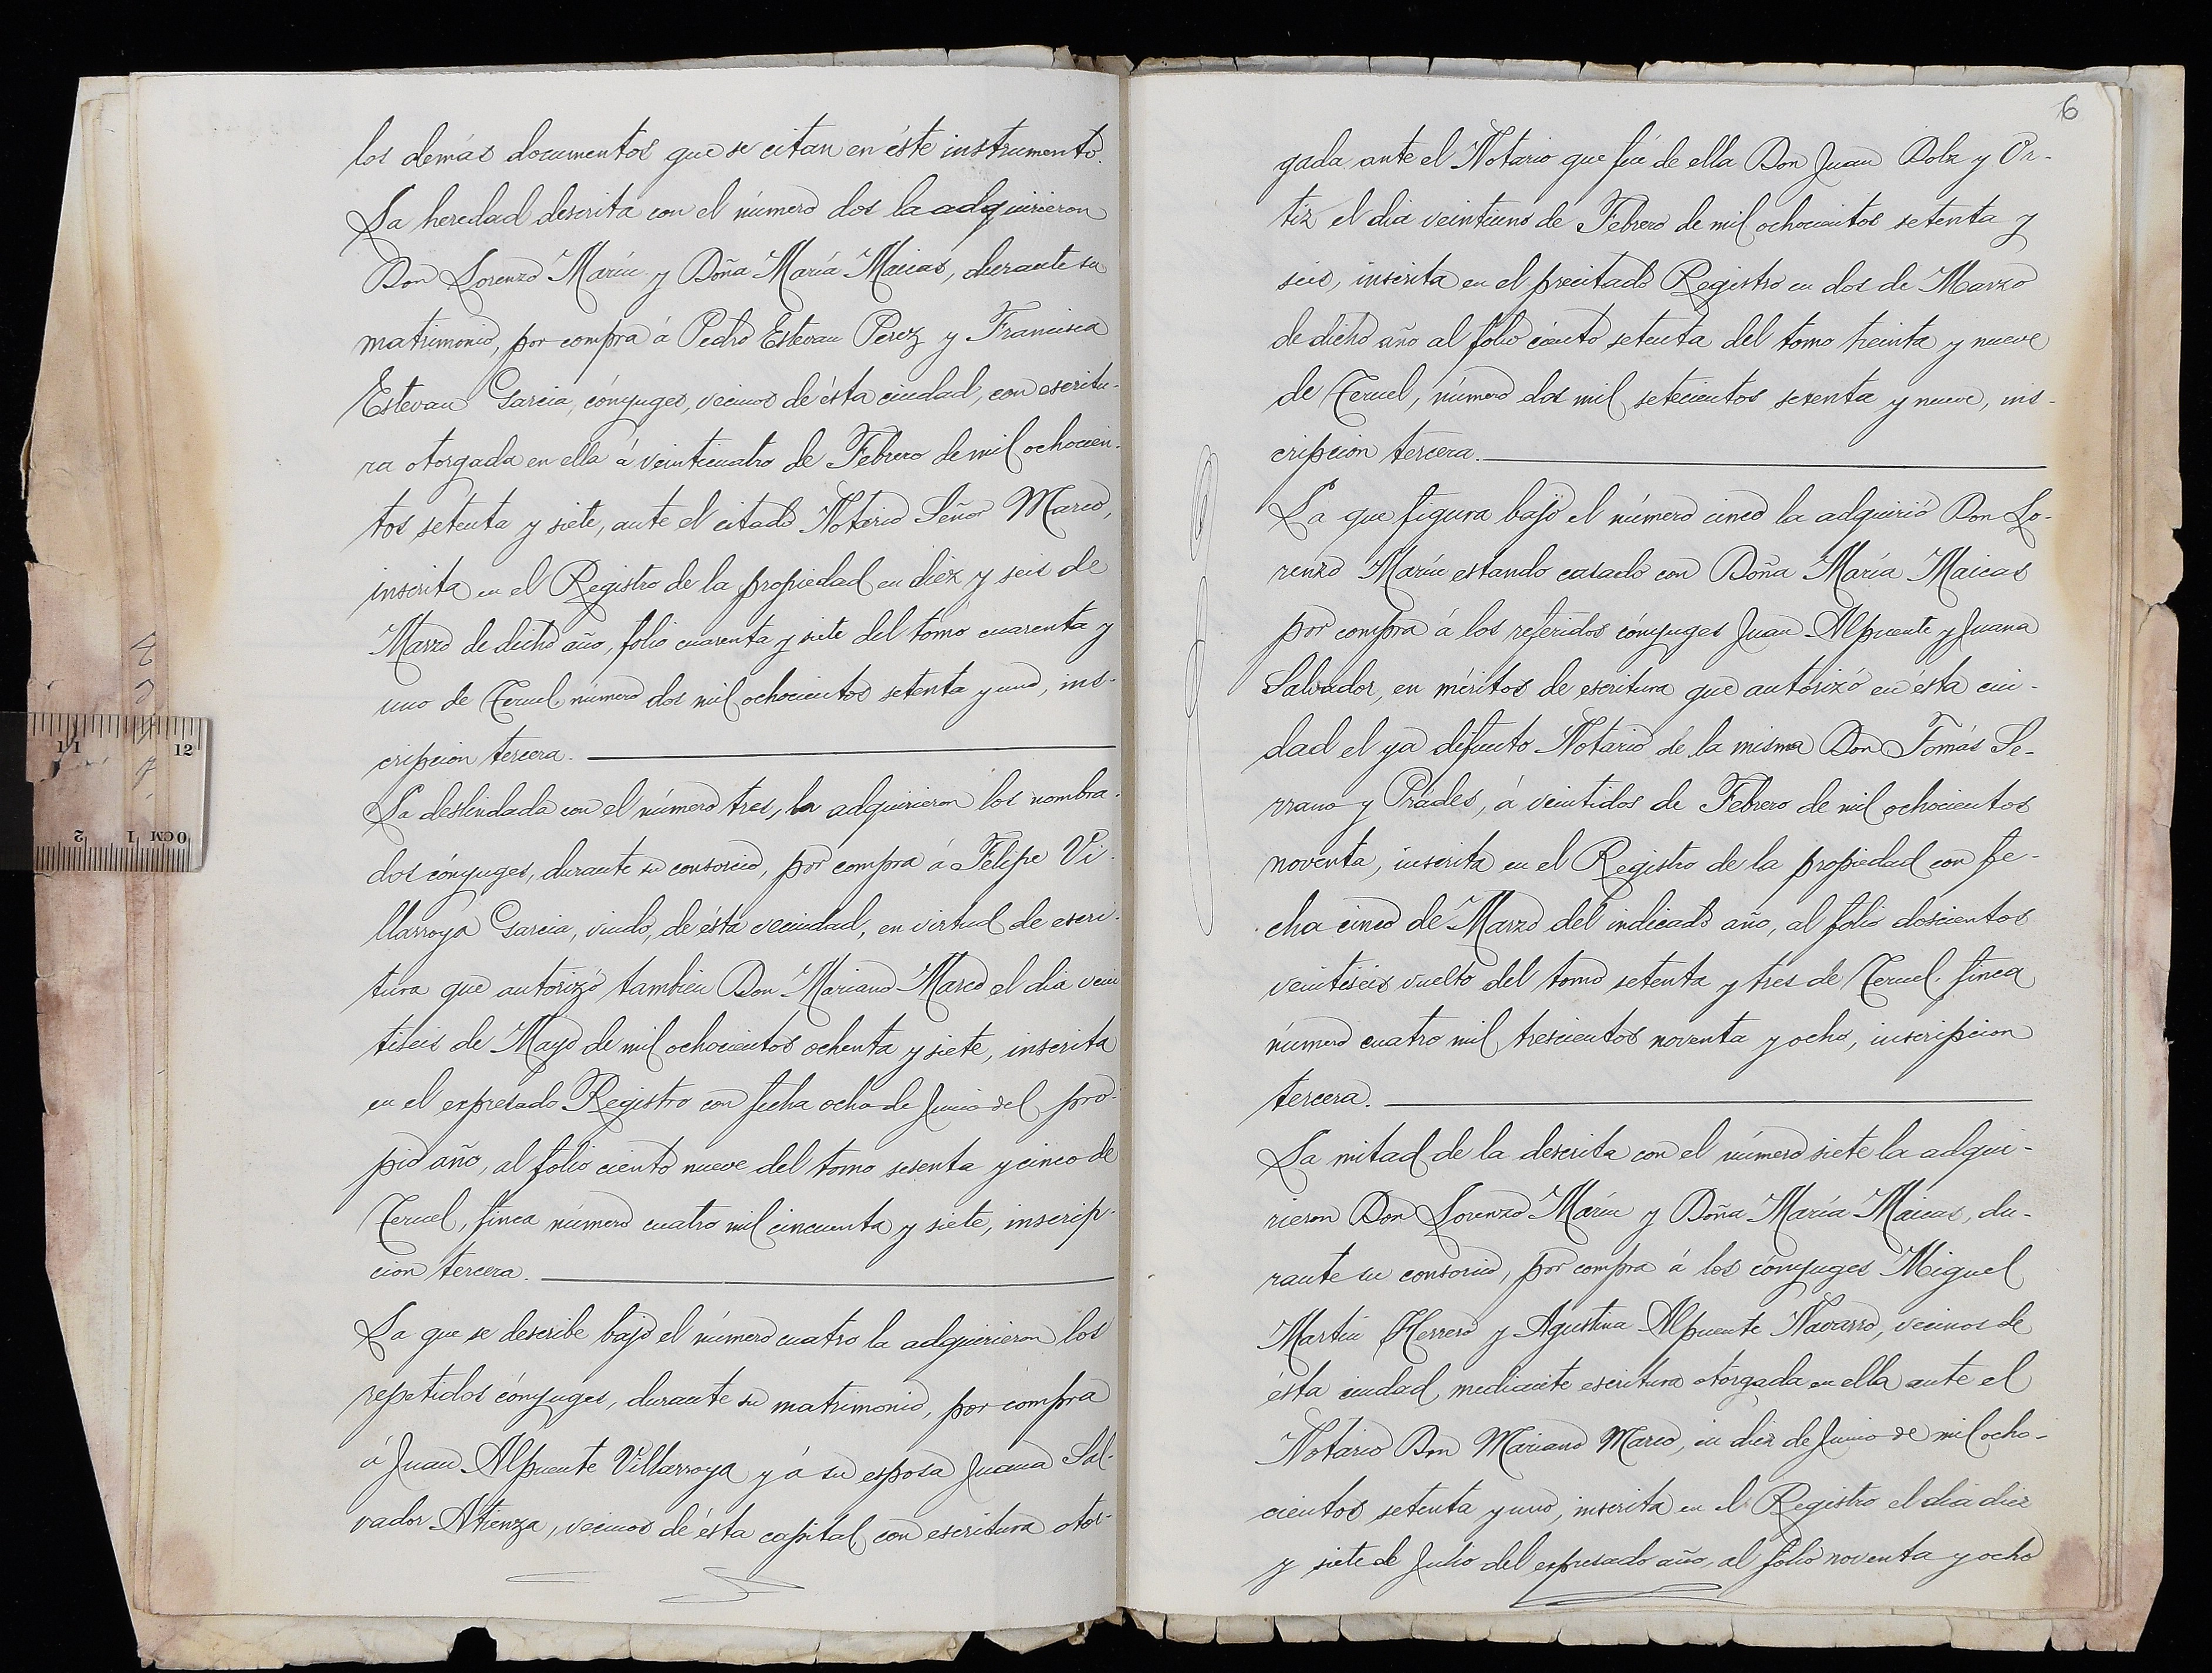 los demás documentos que se citan en éste instrumento.
La heredad descrita con el número dos la adquirieron
Don Lorenzo Marín y Doña María Maicas, durante su
matrimonio, por compra á Pedro Estevan Perez y Francisca
Estevan Garcia, cónyuges, vecinos de ésta ciudad, con escritu-
ra otorgada en ella á veinticuatro de Febrero de mil ochocien-
tos setenta y siete, ante el citado Notario Señor Marco,
inscrita en el Registro de la propiedad en diez y seis de
Marzo de dicho año, folio cuarenta y siete del tomo cuarenta y
uno de Teruel, número dos mil ochocientos setenta y uno, ins-
cripcion tercera.
La deslindada con el número tres, la adquirieron los nombra-
dos cónyuges, durante su consorcio, por compra á Felipe Vi-
llarroya Garcia, viudo, de ésta vecindad, en virtud de escri-
tura que autorizó tambien Don Mariano Marco el dia vein
tiseis de Mayo de mil ochocientos ochenta y siete, inscrita
en el expresado Registro con fecha ocho de Junio del pro-
pio año, al folio ciento nueve del tomo sesenta y cinco de
Teruel, finca número cuatro mil cincuenta y siete, inscrip-
cion tercera.
La que se describe bajo el número cuatro la adquirieron los
repetidos cónyuges, durante su matrimonio, por compra
á Juan Alpuente Villarroya y á su esposa Juana Sal-
vador Atienza, vecinos de ésta capital, con escritura otor-
6
gada ante el Notario que fué de ella Don Juan Dolz y Or-
tiz el dia veintiuno de Febrero de mil ochocientos setenta y
seis, inscrita en el precitado Registro en dos de Marzo
de dicho año al folio ciento setenta del tomo treinta y nueve
de Teruel, número dos mil setecientos setenta y nueve, ins-
cripcion tercera.
La que figura bajo el número cinco la adquirió Don Lo-
renzo Marín estando casado con Doña María Maicas
por compra á los referidos cónyuges Juan Alpuente y Juana
Salvador, en méritos de escritura que autorizó en ésta ciu-
dad el ya difunto Notario de la misma Don Tomás Se-
rrano y Prádes, á veintidos de Febrero de mil ochocientos
noventa, inscrita en el Registro de la propiedad con fe-
cha cinco de Marzo del indicado año, al folio doscientos
veintiseis vuelto del tomo setenta y tres de Teruel, finca
número cuatro mil trescientos noventa y ocho, inscripcion
tercera.
La mitad de la descrita con el número siete la adqui-
rieron Don Lorenzo Marín y Doña María Maicas, du-
rante su consorcio, por compra á los cónyuges Miguel
Martín Herrero y Agustina Alpuente Navarro, vecinos de
ésta ciudad mediante escritura otorgada en ella ante el
Notario Don Mariano Marco, en diez de Junio de mil ocho-
cientos setenta y uno, inscrita en el Registro el dia diez
y siete de Julio del expresado año, al folio noventa y ocho